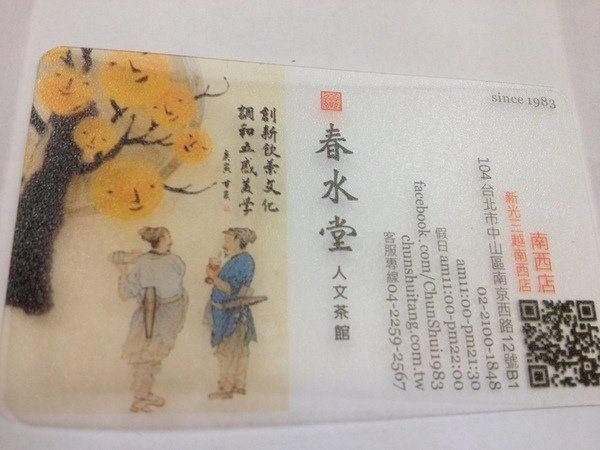 since 1983
南西店
新光三越南西店
104 台北市中山區南京西路12號B1
02-2100-1848
am11:00-pm21:30
假日 am11:00-pm22:00
chunshuitang.com.tw
facebook.com/ChunShui1983
客服專線 04-2259-2567
春水堂 人文茶館
創新飲茶文化
調和五感美學